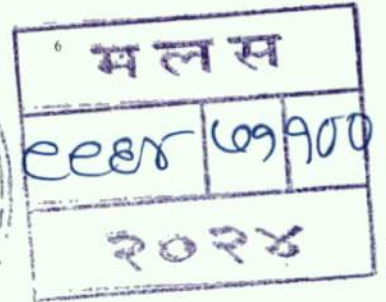 6
म ल स
९९६४ ७१ १००
२०२४